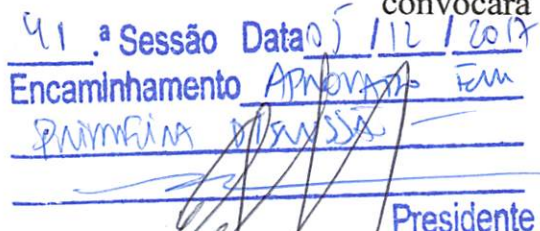 convocará
41.ª Sessão Data 05/12/2017
Encaminhamento APROVADO EM
PRIMEIRA DISCUSSÃO —
Presidente